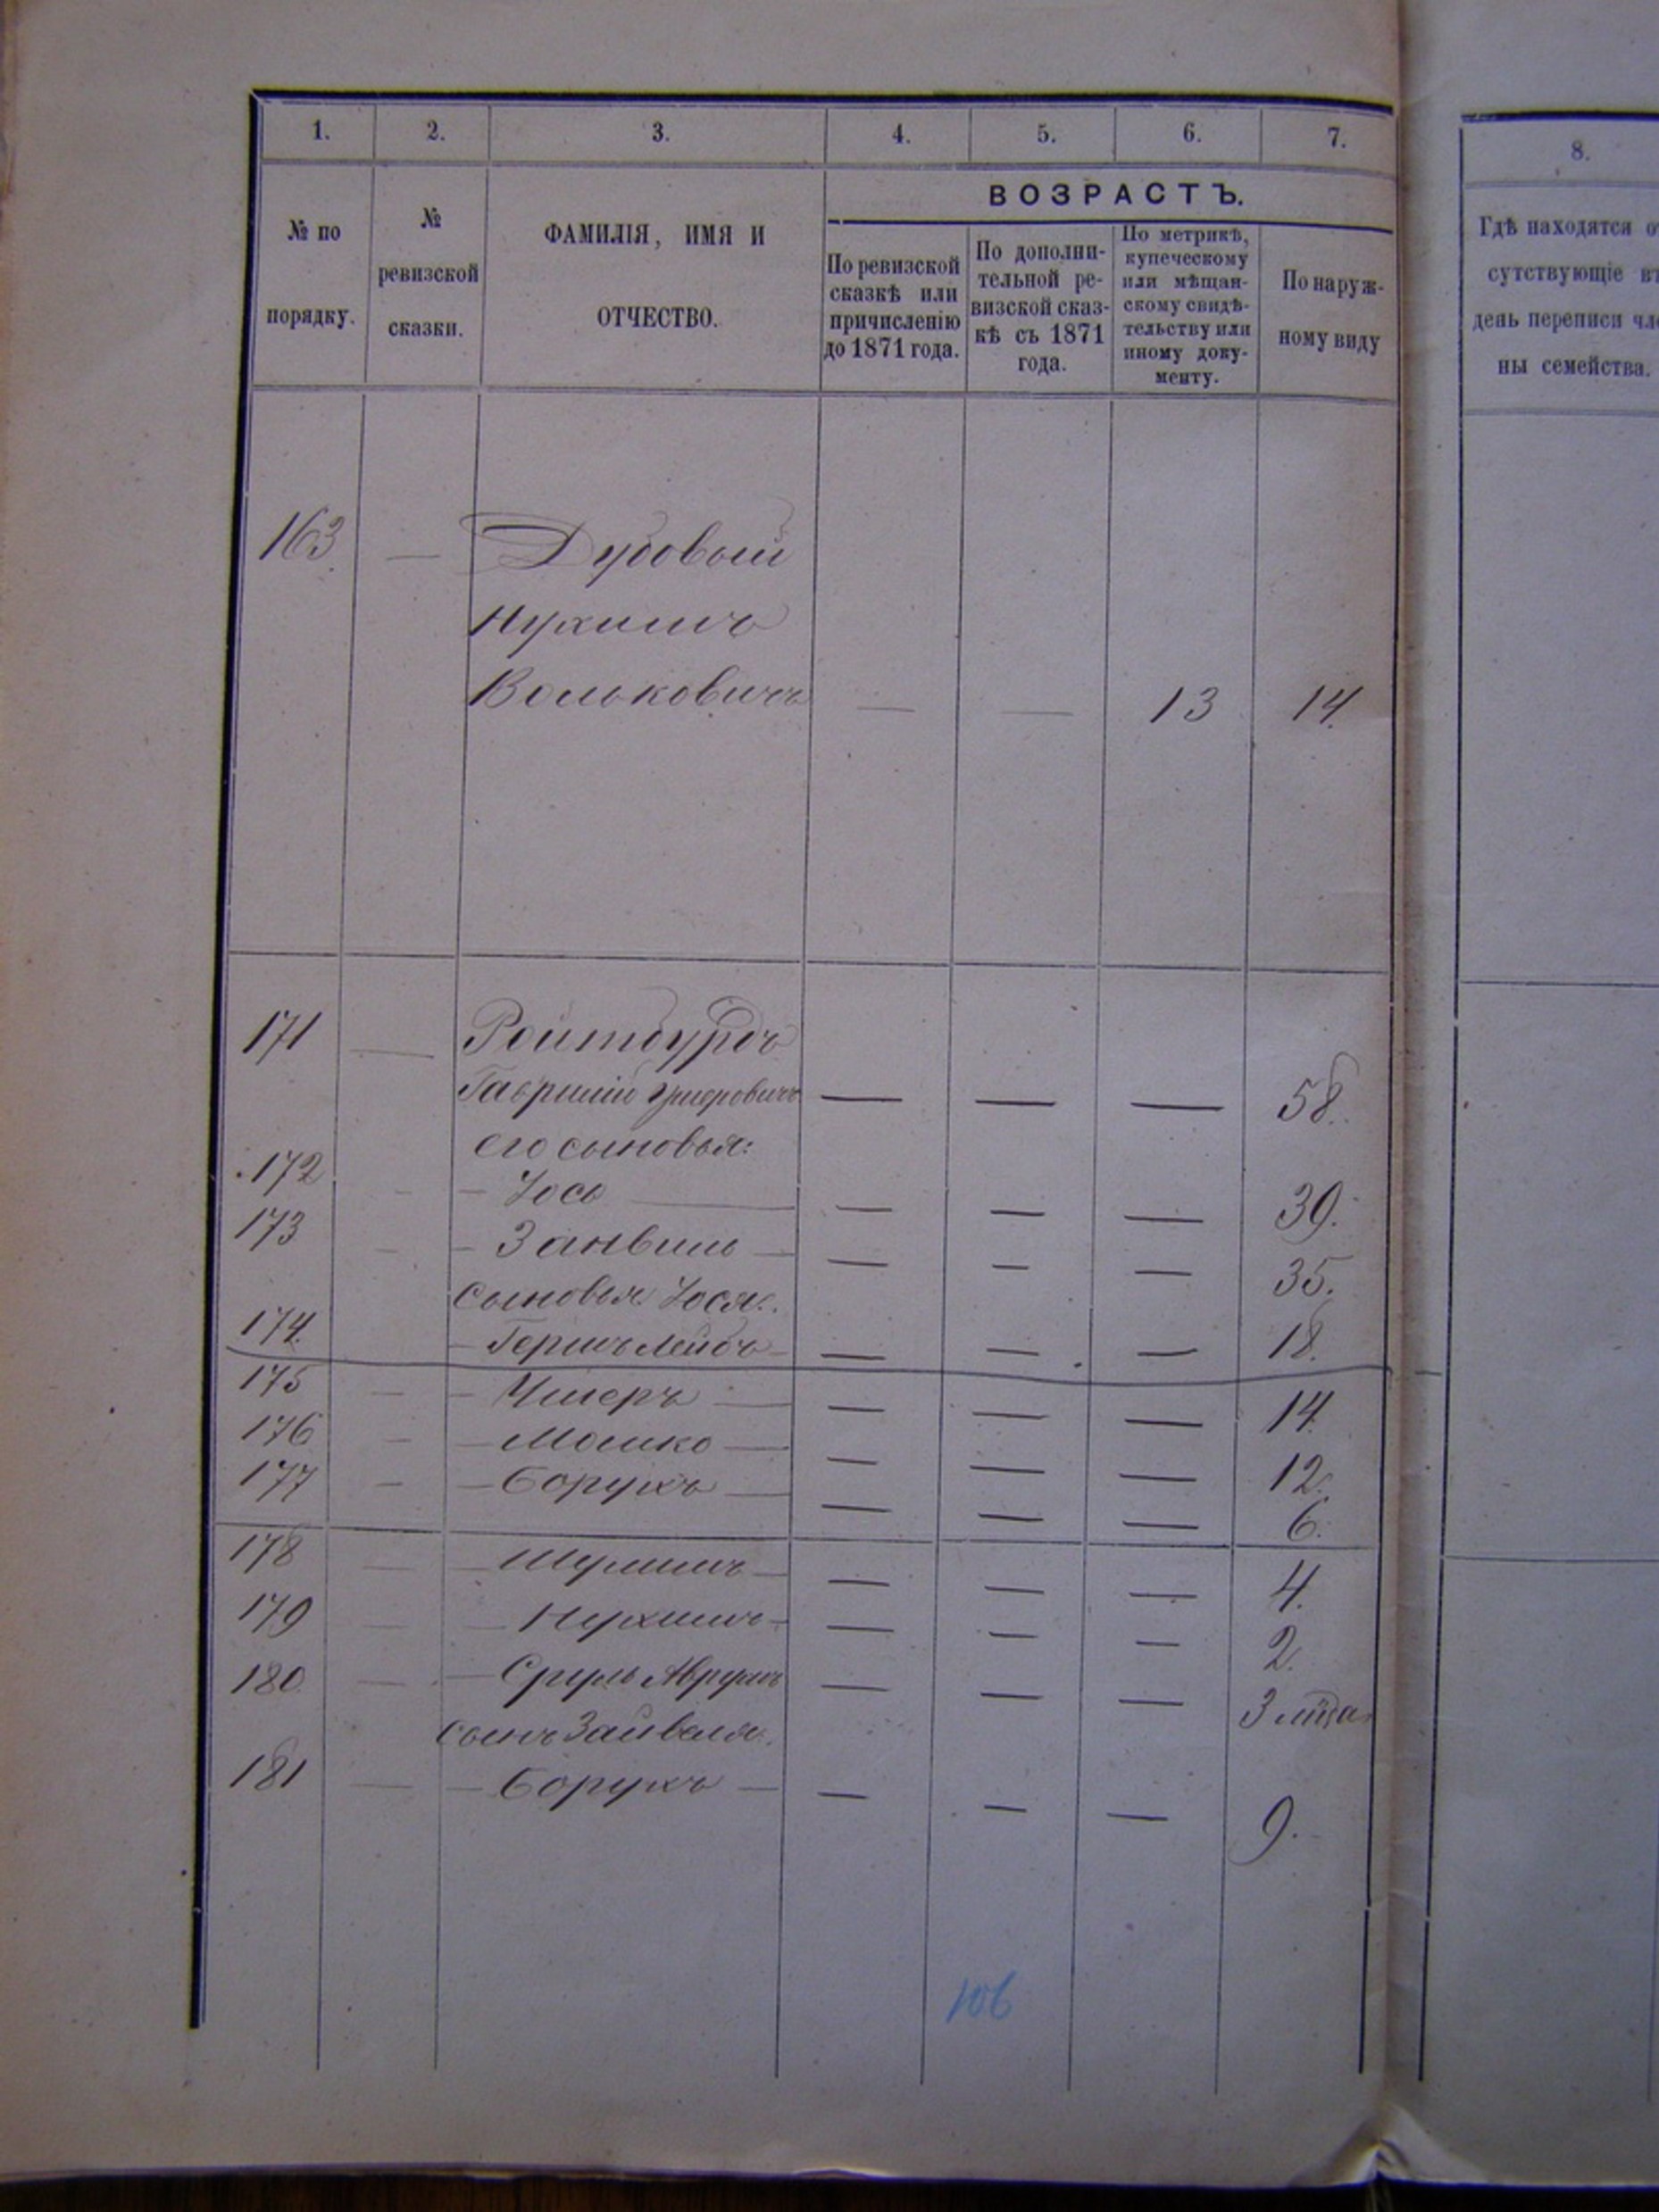 1. 2. 3. 4. 5. 6. 7. 8.
ВОЗРАСТЪ.
№ по порядку.
№ ревизской сказки.
ФАМИЛІЯ, ИМЯ И ОТЧЕСТВО.
По ревизской сказкѣ или причисленію до 1871 года.
По дополни-
тельной ре-
визской сказ-
кѣ съ 1871
года.
По метрикѣ,
купеческому
или мѣщан-
скому свидѣ-
тельству или
иному доку-
менту.
По наруж-
ному виду
Гдѣ находятся от
сутствующіе въ
день переписи чле
ны семейства.
163. — Дубовый
Нухимъ
Вольковичъ — — 13 14.
171 — Ройтбурдъ
Гавриил — — — 58.
его сыновья:
172 — — Іось — — — 39.
173 — — Занвиль — — — — 35.
Сыновья Іося:
174. — Гершъ Лейбъ — — — — 18.
175 — — Ушеръ — — — — 14.
176 — — Мошко — — — — 12.
177 — — Борухъ — — — — 6.
178 — — Шулимъ — — — — 4.
179 — — Нухимъ — — — — 2.
180 — — Сруль Аврумъ — — — 3 мца
сынъ Занвеля.
181 — — Борухъ — — — — 9.
106